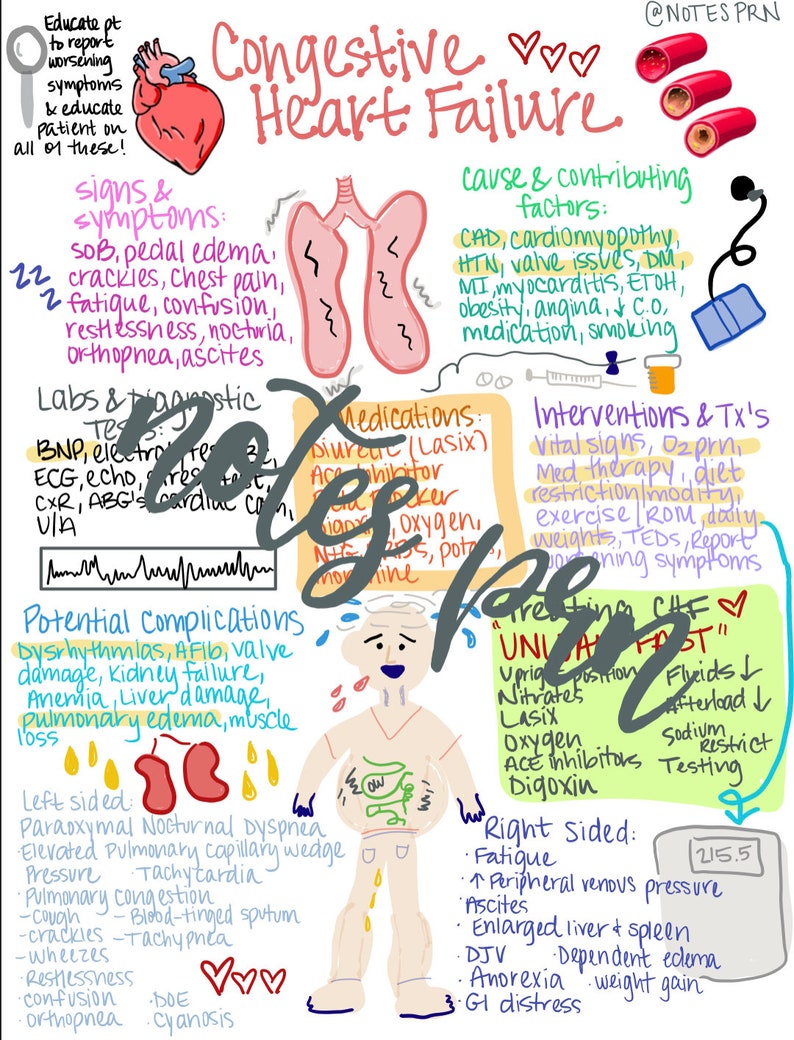 @NOTESPRN
Educate pt
to report
worsening
symptoms
& educate
patient on
all of these!
Congestive
Heart Failure
signs &
symptoms:
SOB, pedal edema,
crackles, chest pain,
fatigue, confusion,
restlessness, nocturia,
orthopnea, ascites
zz
z
cause & contributing
factors:
CAD, cardiomyopothy,
HTN, valve issues, DM,
MI, myocarditis, ETOH,
obesity, angina, ↓ C.O,
medication, smoking
Labs & Diagnostic
Tests:
BNP,
ECG, echo,
CXR, ABG's, cardiac cath,
U/A
Medications:
Diuretic (Lasix)
Ace inhibitor
Beta Blocker
Digoxin, oxygen,
NTG,
morphine
Interventions & Tx's
Vital signs, O2 prn,
Med therapy, diet
restriction/modify,
exercise/ROM, daily
weights, TEDs, Report
worsening symptoms
notes prn
Potential Complications
Dysrhythmias, AFib, valve
damage, kidney failure,
Anemia, Liver damage,
pulmonary edema, muscle
loss
Treating CHF
"UNLOAD FAST"
Upright position
Nitrates
Lasix
Oxygen
ACE inhibitors
Digoxin
Fluids ↓
Afterload ↓
Sodium
Restrict
Testing
ow
Left sided:
Paraoxymal Nocturnal Dyspnea
·Elevated Pulmonary Capillary wedge
Pressure ·Tachycardia
·Pulmonary Congestion
-cough -Blood-tinged sputum
-crackles -Tachypnea
-wheezes
·Restlessness
·confusion ·DOE
·orthopnea ·cyanosis
Right Sided:
·Fatigue
·↑ Peripheral venous pressure
·Ascites
·Enlarged liver & spleen
·DJV ·Dependent edema
·Anorexia ·weight gain
·GI distress
215.5